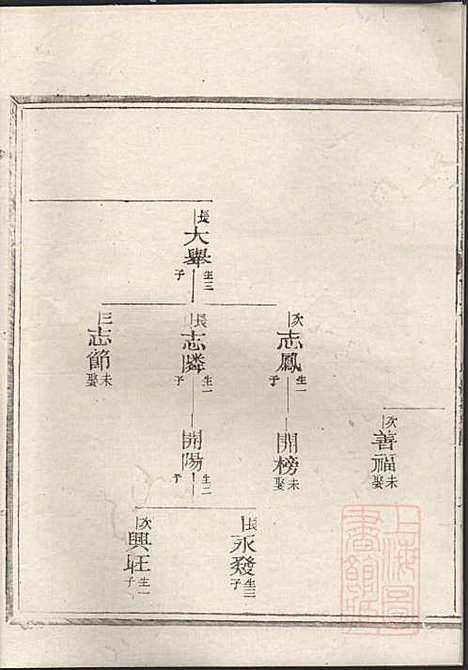 長
大舉
生三子
次
志鳳
生一子
長
志麟
生一子
三
志節
未娶
次
善福
未娶
開榜
未娶
開陽
生二子
長
永發
生三子
次
興旺
生一子
上海圖書館藏